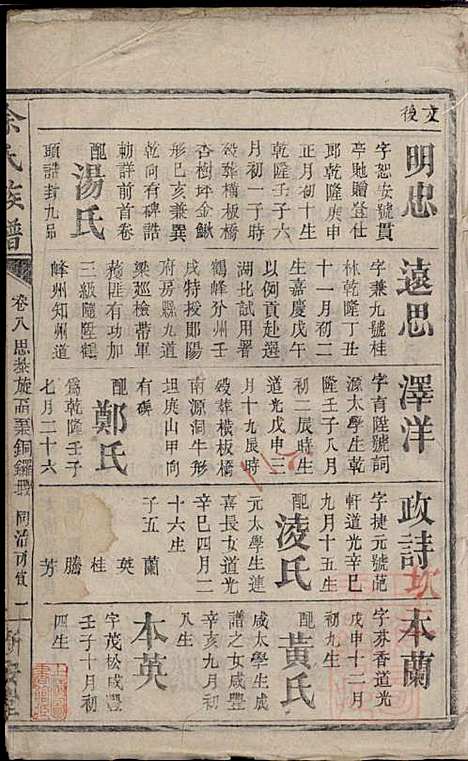 文後
明忠
字恕安號貫
亭貤贈登仕
郎乾隆庚申
正月初十生
乾隆壬子六
月初一子時
歿葬橫板橋
杏樹坪金鰍
形巳亥兼巽
乾向有碑誥
朝詳前首卷
配湯氏
頭誥封九品
遠思
字兼九號桂
林乾隆丁丑
十一月初二
生嘉慶戊午
以例貢赴選
湖北試用署
鶴峰分州壬
戌特授鄖陽
府房縣九道
梁廵檢帶軍
薙匪有功加
三級隨陞鶴
峰州知州道
澤洋
字育陞號詞
源太學生乾
隆壬子八月
初二辰時生
道光戊申三
月十九辰時
歿葬橫板橋
南源洞牛形
坦庚山甲向
有碑
配鄭氏
爲乾隆壬子
七月二十六
政詩
字捷元號葩
軒道光辛巳
九月十五生
配淩氏
元太學生連
喜長女道光
辛巳四月二
十六生
子五
蘭
英
桂
騰
芳
本蘭
字芬香道光
戊申十二月
初九生
配黃氏
成太學生成
譜之女咸豐
辛亥九月初
八生
本英
字茂松咸豐
壬子十月初
四生
余氏族譜
卷八
思泰旋
同治